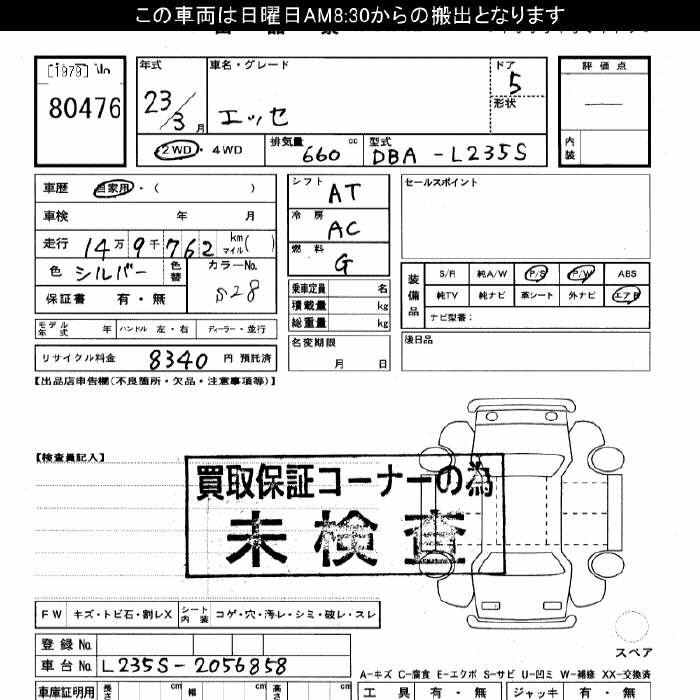 この車両は日曜日AM8:30からの搬出となります
[1979] No
80476
年式 23/3月
車名・グレード エッセ
ドア 5
形状
評価点
内装
2WD・4WD
排気量 660 cc
型式 DBA-L235S
車歴 自家用・( )
車検 年 月
走行 14万9千762 km マイル( )
色 シルバー 色替
カラーNo. S28
保証書 有・無
シフト AT
冷房 AC
燃料 G
乗車定員 名
積載量 kg
総重量 kg
セールスポイント
装備品
S/R 純A/W P/S P/W ABS
純TV 純ナビ 革シート 外ナビ エアB
ナビ型番:
モデル年式 年 ハンドル 左・右 ディーラー・並行
名変期限 月 日
後日品
リサイクル料金 8340 円 預託済
【出品店申告欄(不良箇所・欠品・注意事項等)】
【検査員記入】
買取保証コーナーの為
未検査
FW キズ・トビ石・割レX シート内装 コゲ・穴・汚レ・シミ・破レ・スレ
スペア
登録No.
車台No. L235S-2056858
A-キズ C-腐食 E-エクボ S-サビ U-凹ミ W-補修 XX-交換済
車庫証明用 長さ cm 幅 cm 高さ cm
工具 有・無 ジャッキ 有・無